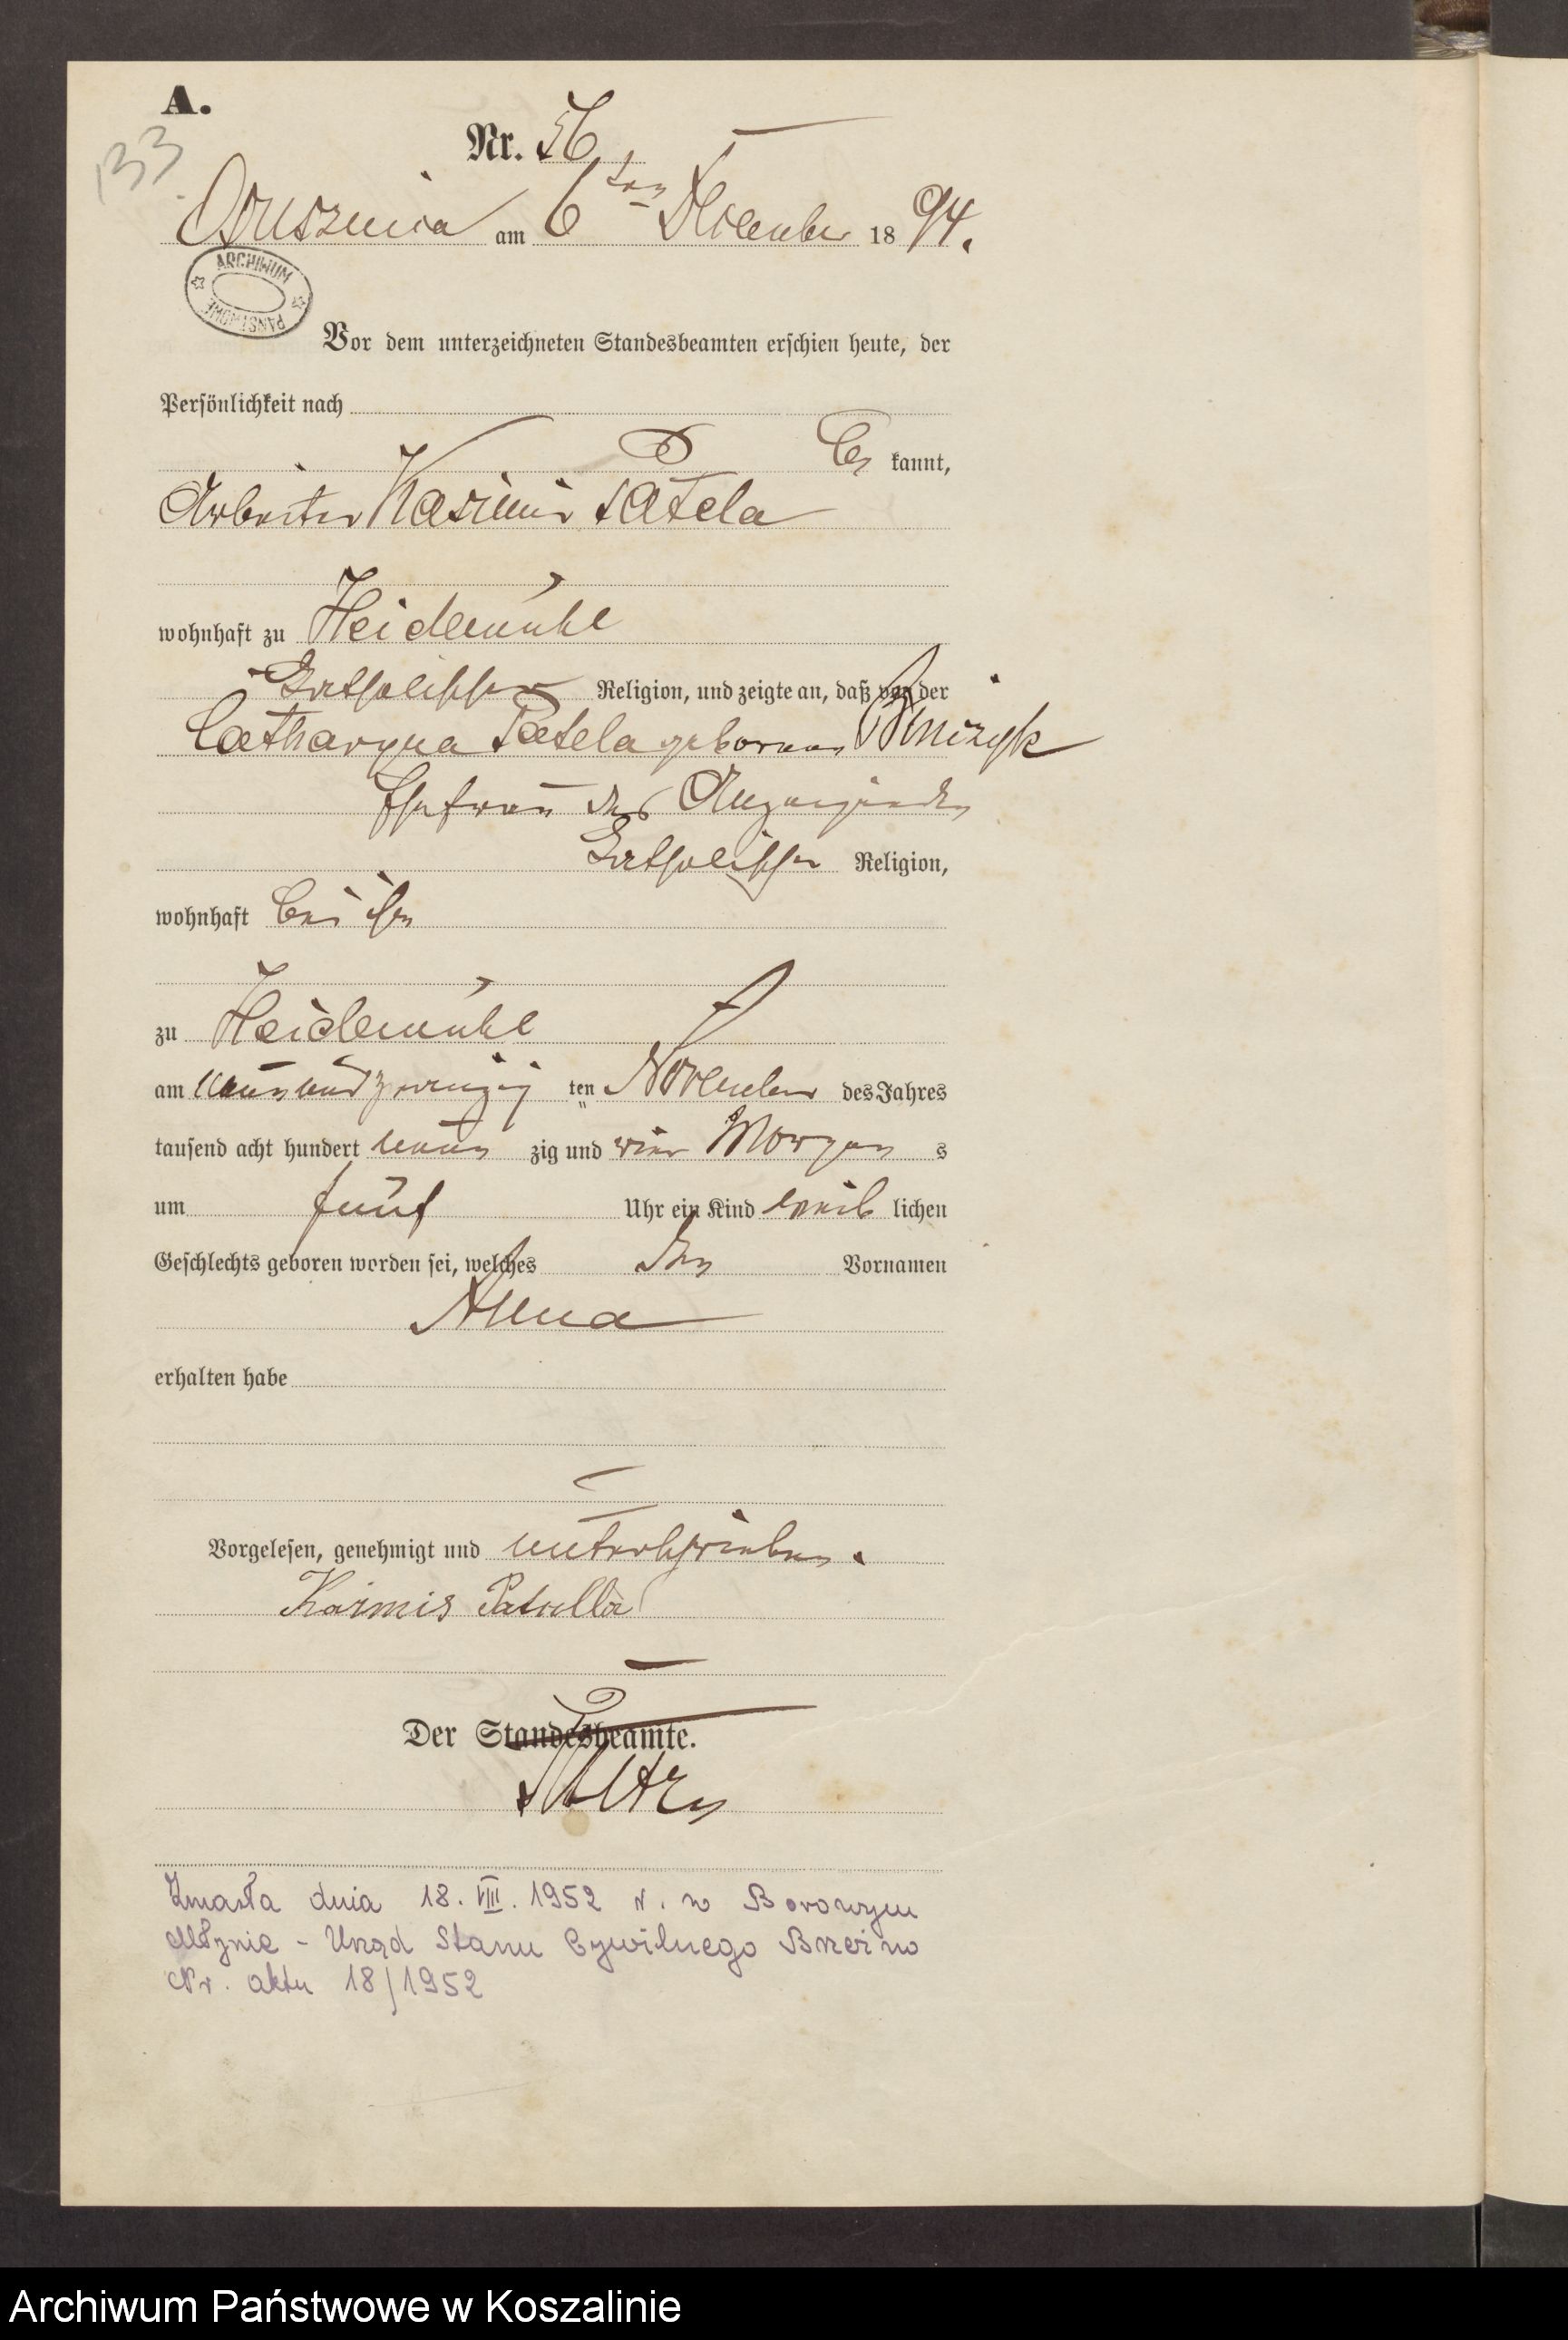 A.
133
Nr. 56
Osusznica am 6ten December 1894.
ARCHIWUM
PAŃSTWOWE
Vor dem unterzeichneten Standesbeamten erschien heute, der
Persönlichkeit nach
be kannt,
Arbeiter Kasimir Patela
wohnhaft zu Heidemühl
katholischer Religion, und zeigte an, daß von der
Catharyna Patela geborenen
Ehefrau des Anzeigenden
katholischer Religion,
wohnhaft bei ihm
zu Heidemühl
am neun und zwanzig ten November des Jahres
tausend acht hundert neun zig und vier Morgen s
um fünf Uhr ein Kind weib lichen
Geschlechts geboren worden sei, welches den Vornamen
Anna
erhalten habe
Vorgelesen, genehmigt und unterschrieben.
Kaimis Patella
Der Standesbeamte.
Zmarła dnia 18. VIII. 1952 r. w Borowym
Młynie - Urząd Stanu Cywilnego Brzeźno
Nr. aktu 18/1952
Archiwum Państwowe w Koszalinie